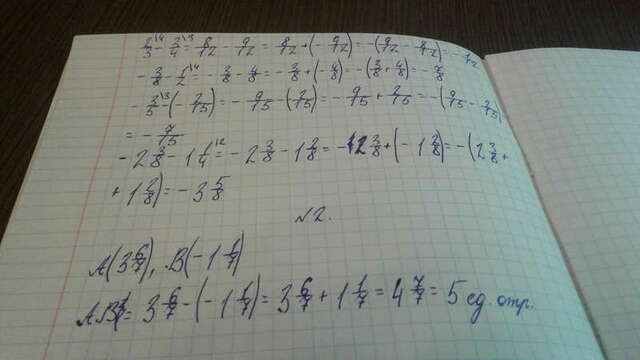 2/3 \4 - 3/4 \3 = 8/12 - 9/12 = 8/12 + (- 9/12) = -(9/12 - 8/12) = - 1/12
- 3/8 - 1/2 \4 = - 3/8 - 4/8 = - 3/8 + (- 4/8) = -(3/8 + 4/8) = - 7/8
- 3/5 \3 - (- 2/15) = - 9/15 - (- 2/15) = - 9/15 + 2/15 = -(9/15 - 2/15)
= - 7/15
- 2 3/8 - 1 1/4 \2 = - 2 3/8 - 1 2/8 = - 2 3/8 + (- 1 2/8) = -(2 3/8 +
+ 1 2/8) = - 3 5/8
№2.
A(3 6/7), B(-1 1/7)
AB = 3 6/7 - (- 1 1/7) = 3 6/7 + 1 1/7 = 4 7/7 = 5 ед. отр.